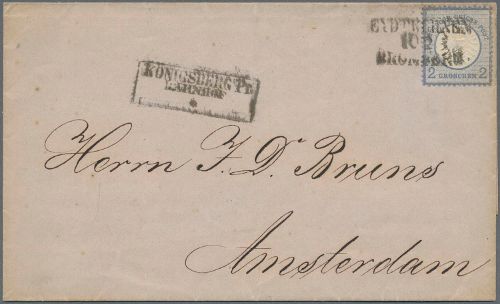 EYDTKUHNEN
10
BROMBERG
2 GROSCHEN 2
KÖNIGSBERG PR
BAHNHOF
*
Herrn F. D. Bruns
Amsterdam